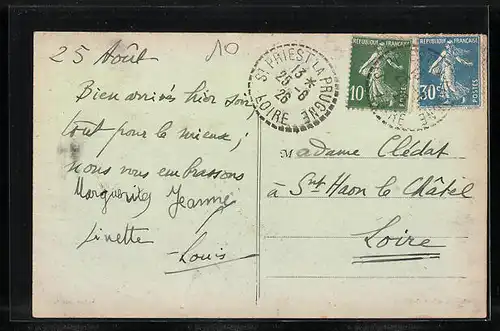 25 Août
10
Bien arrivés hier soir,
tout pour le mieux;
nous vous embrassons
Marguerite Jeanne
Linette
Louis
ST PRIEST-LA-PRUGNE
13 *
25 - 8
26
LOIRE
REPUBLIQUE FRANÇAISE
10
POSTES
REPUBLIQUE FRANÇAISE
30c
POSTES
Madame Clédat
à Snt Haon le Châtel
Loire